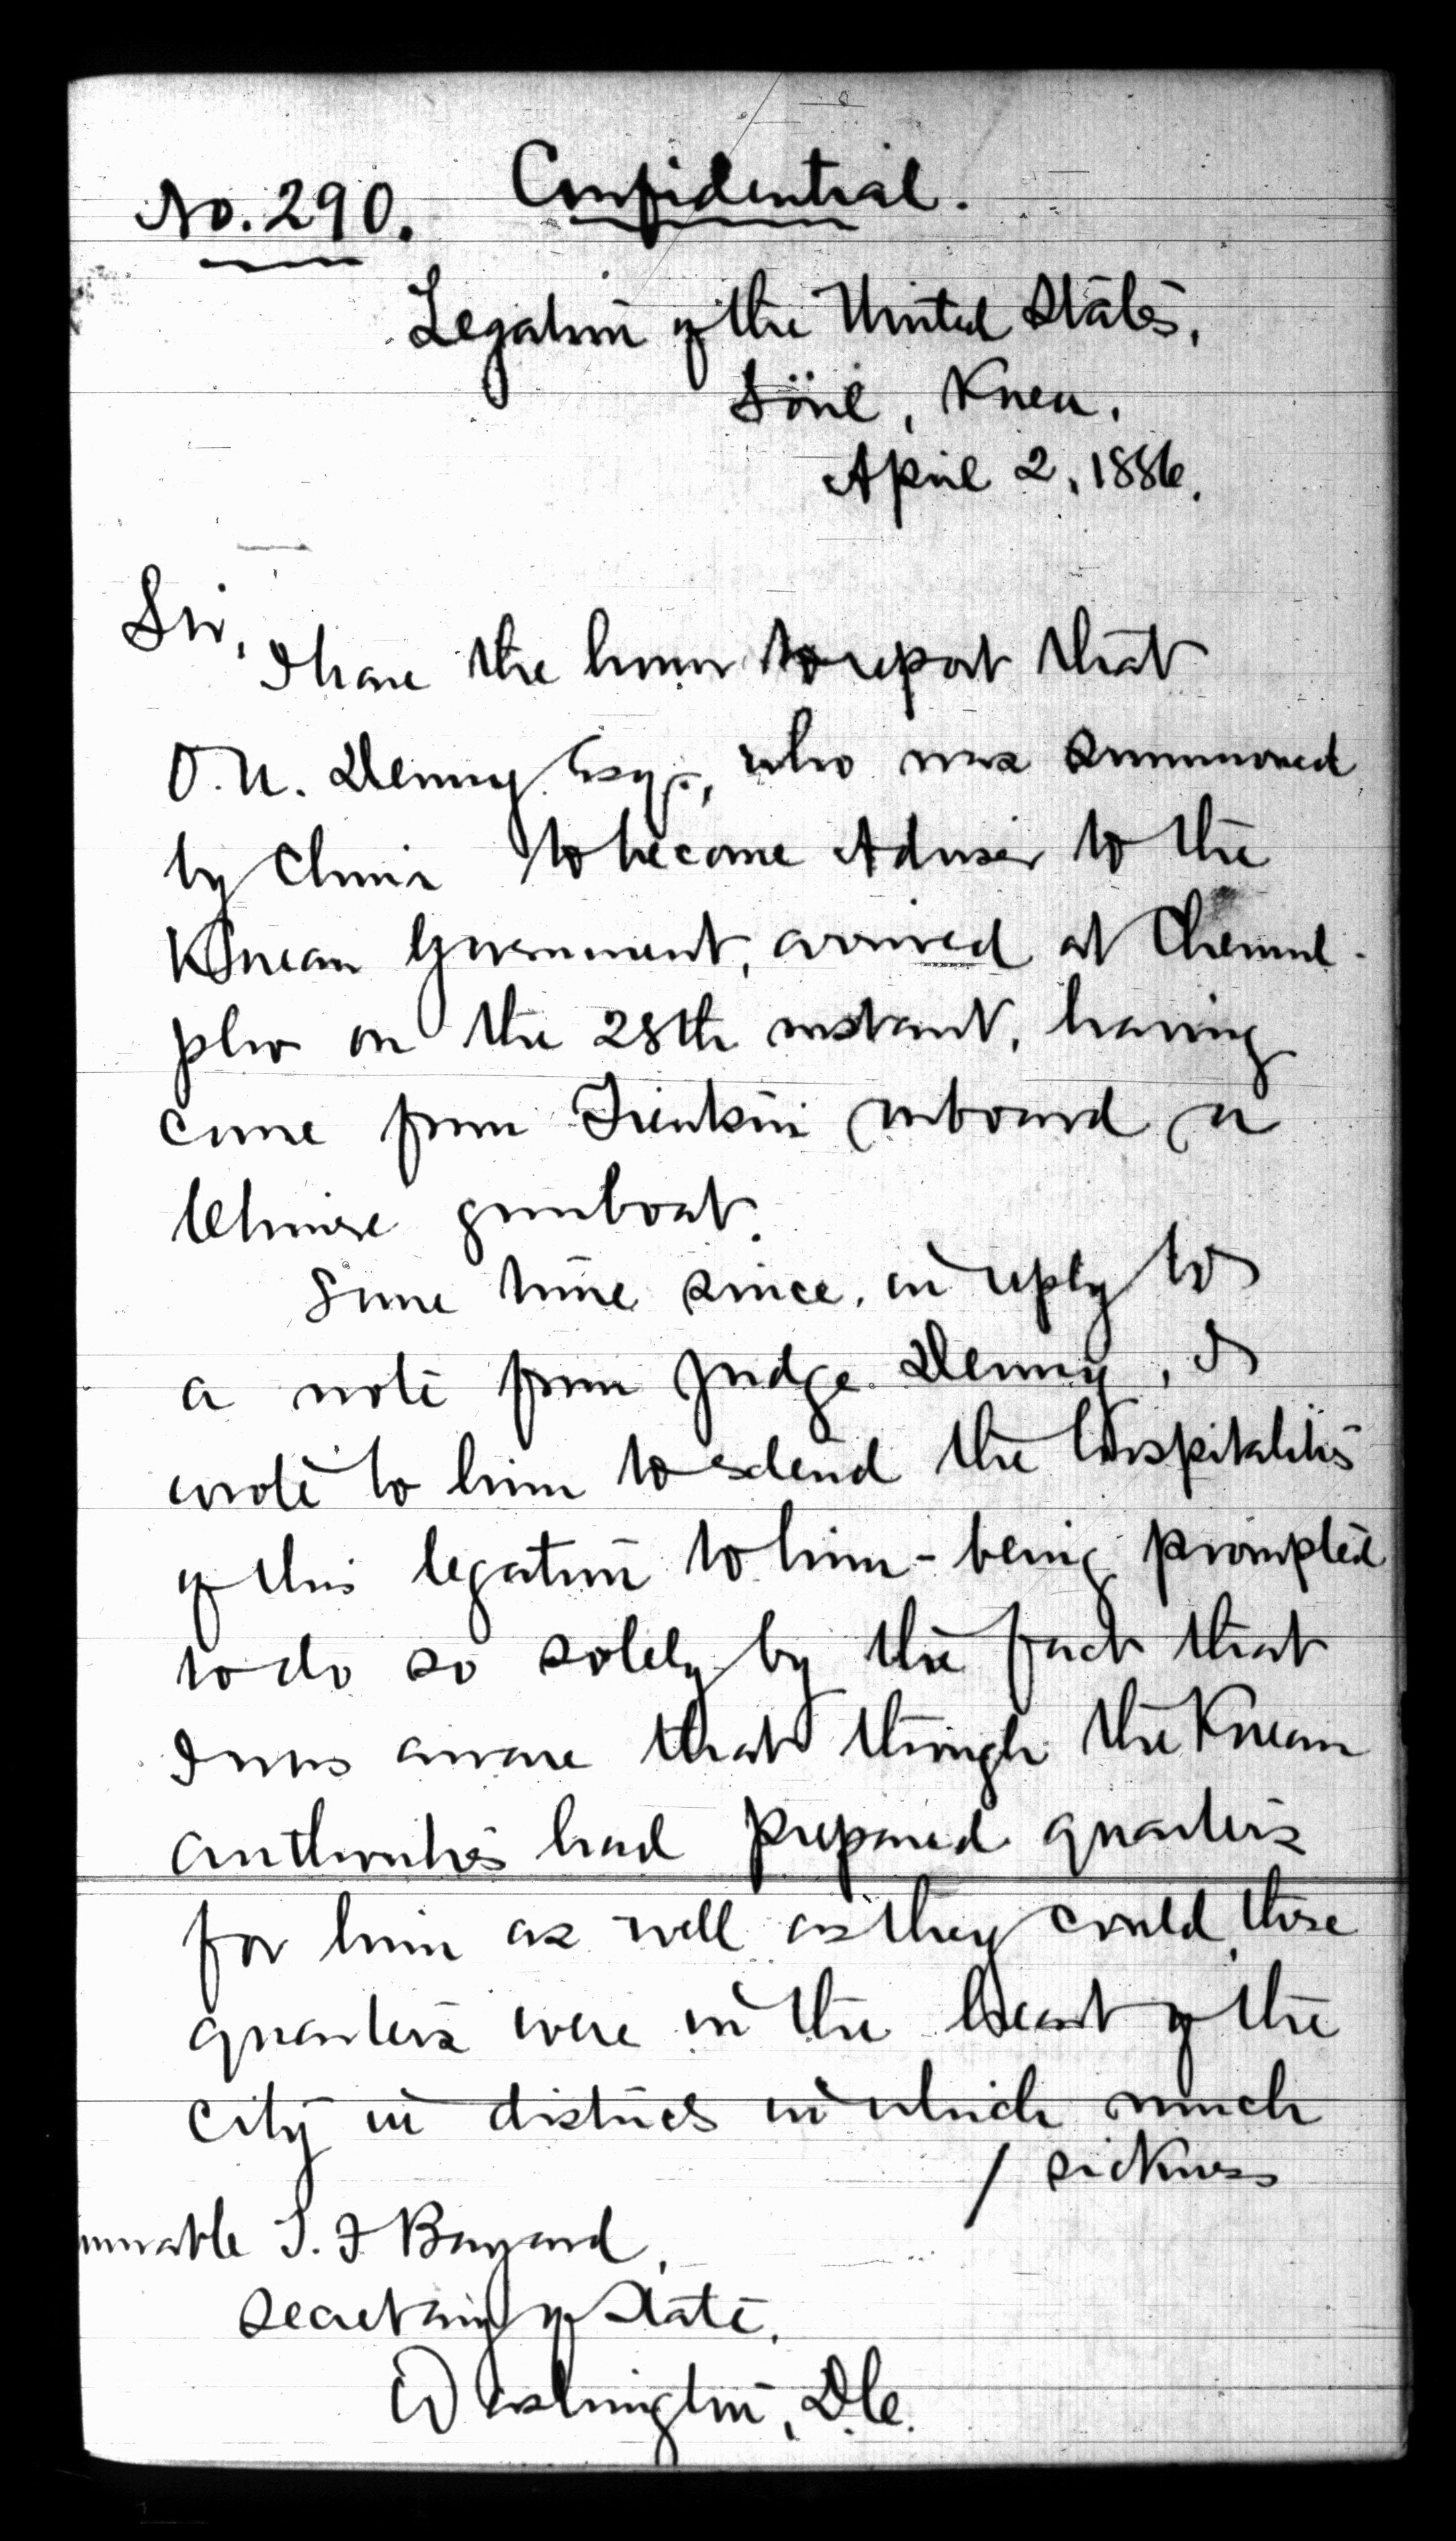 No. 290. Confidential.
Legation of the United States,
Söul, Korea.
April 2, 1886.
Sir,
I have the honor to report that
O. N. Denny Esqr., who was summoned
by China to become Adviser to the
Korean Government, arrived at Chemul-
pho on the 28th instant, having
come from Tientsin onboard a
Chinese gunboat.
Some time since, in reply to
a note from Judge Denny, I
wrote to him to extend the hospitalities
of this legation to him - being prompted
to do so solely by the fact that
I was aware that though the Korean
authorities had prepared quarters
for him as well as they could, those
quarters were in the heart of the
city in districts in which much
/ sickness
norable T. F Bayard,
Secretary of State,
Washington, D.C.